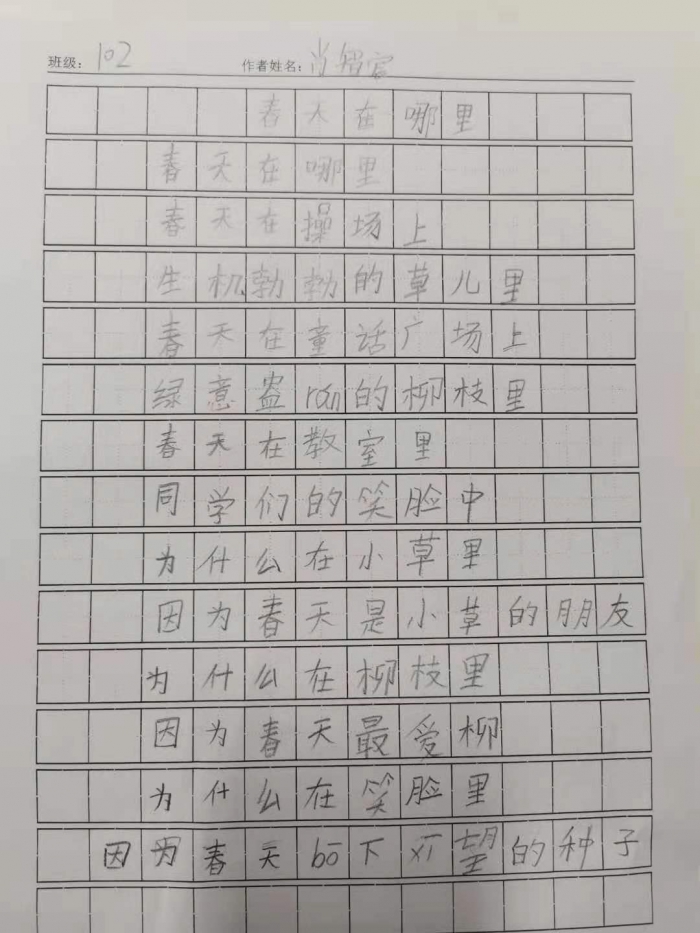 班级: 102 作者姓名: 肖
春天在哪里
春天在哪里
春天在操场上
生机勃勃的草儿里
春天在童话广场上
绿意盎rán的柳枝里
春天在教室里
同学们的笑脸中
为什么在小草里
因为春天是小草的朋友
为什么在柳枝里
因为春天最爱柳
为什么在笑脸里
因为春天bō下xī望的种子